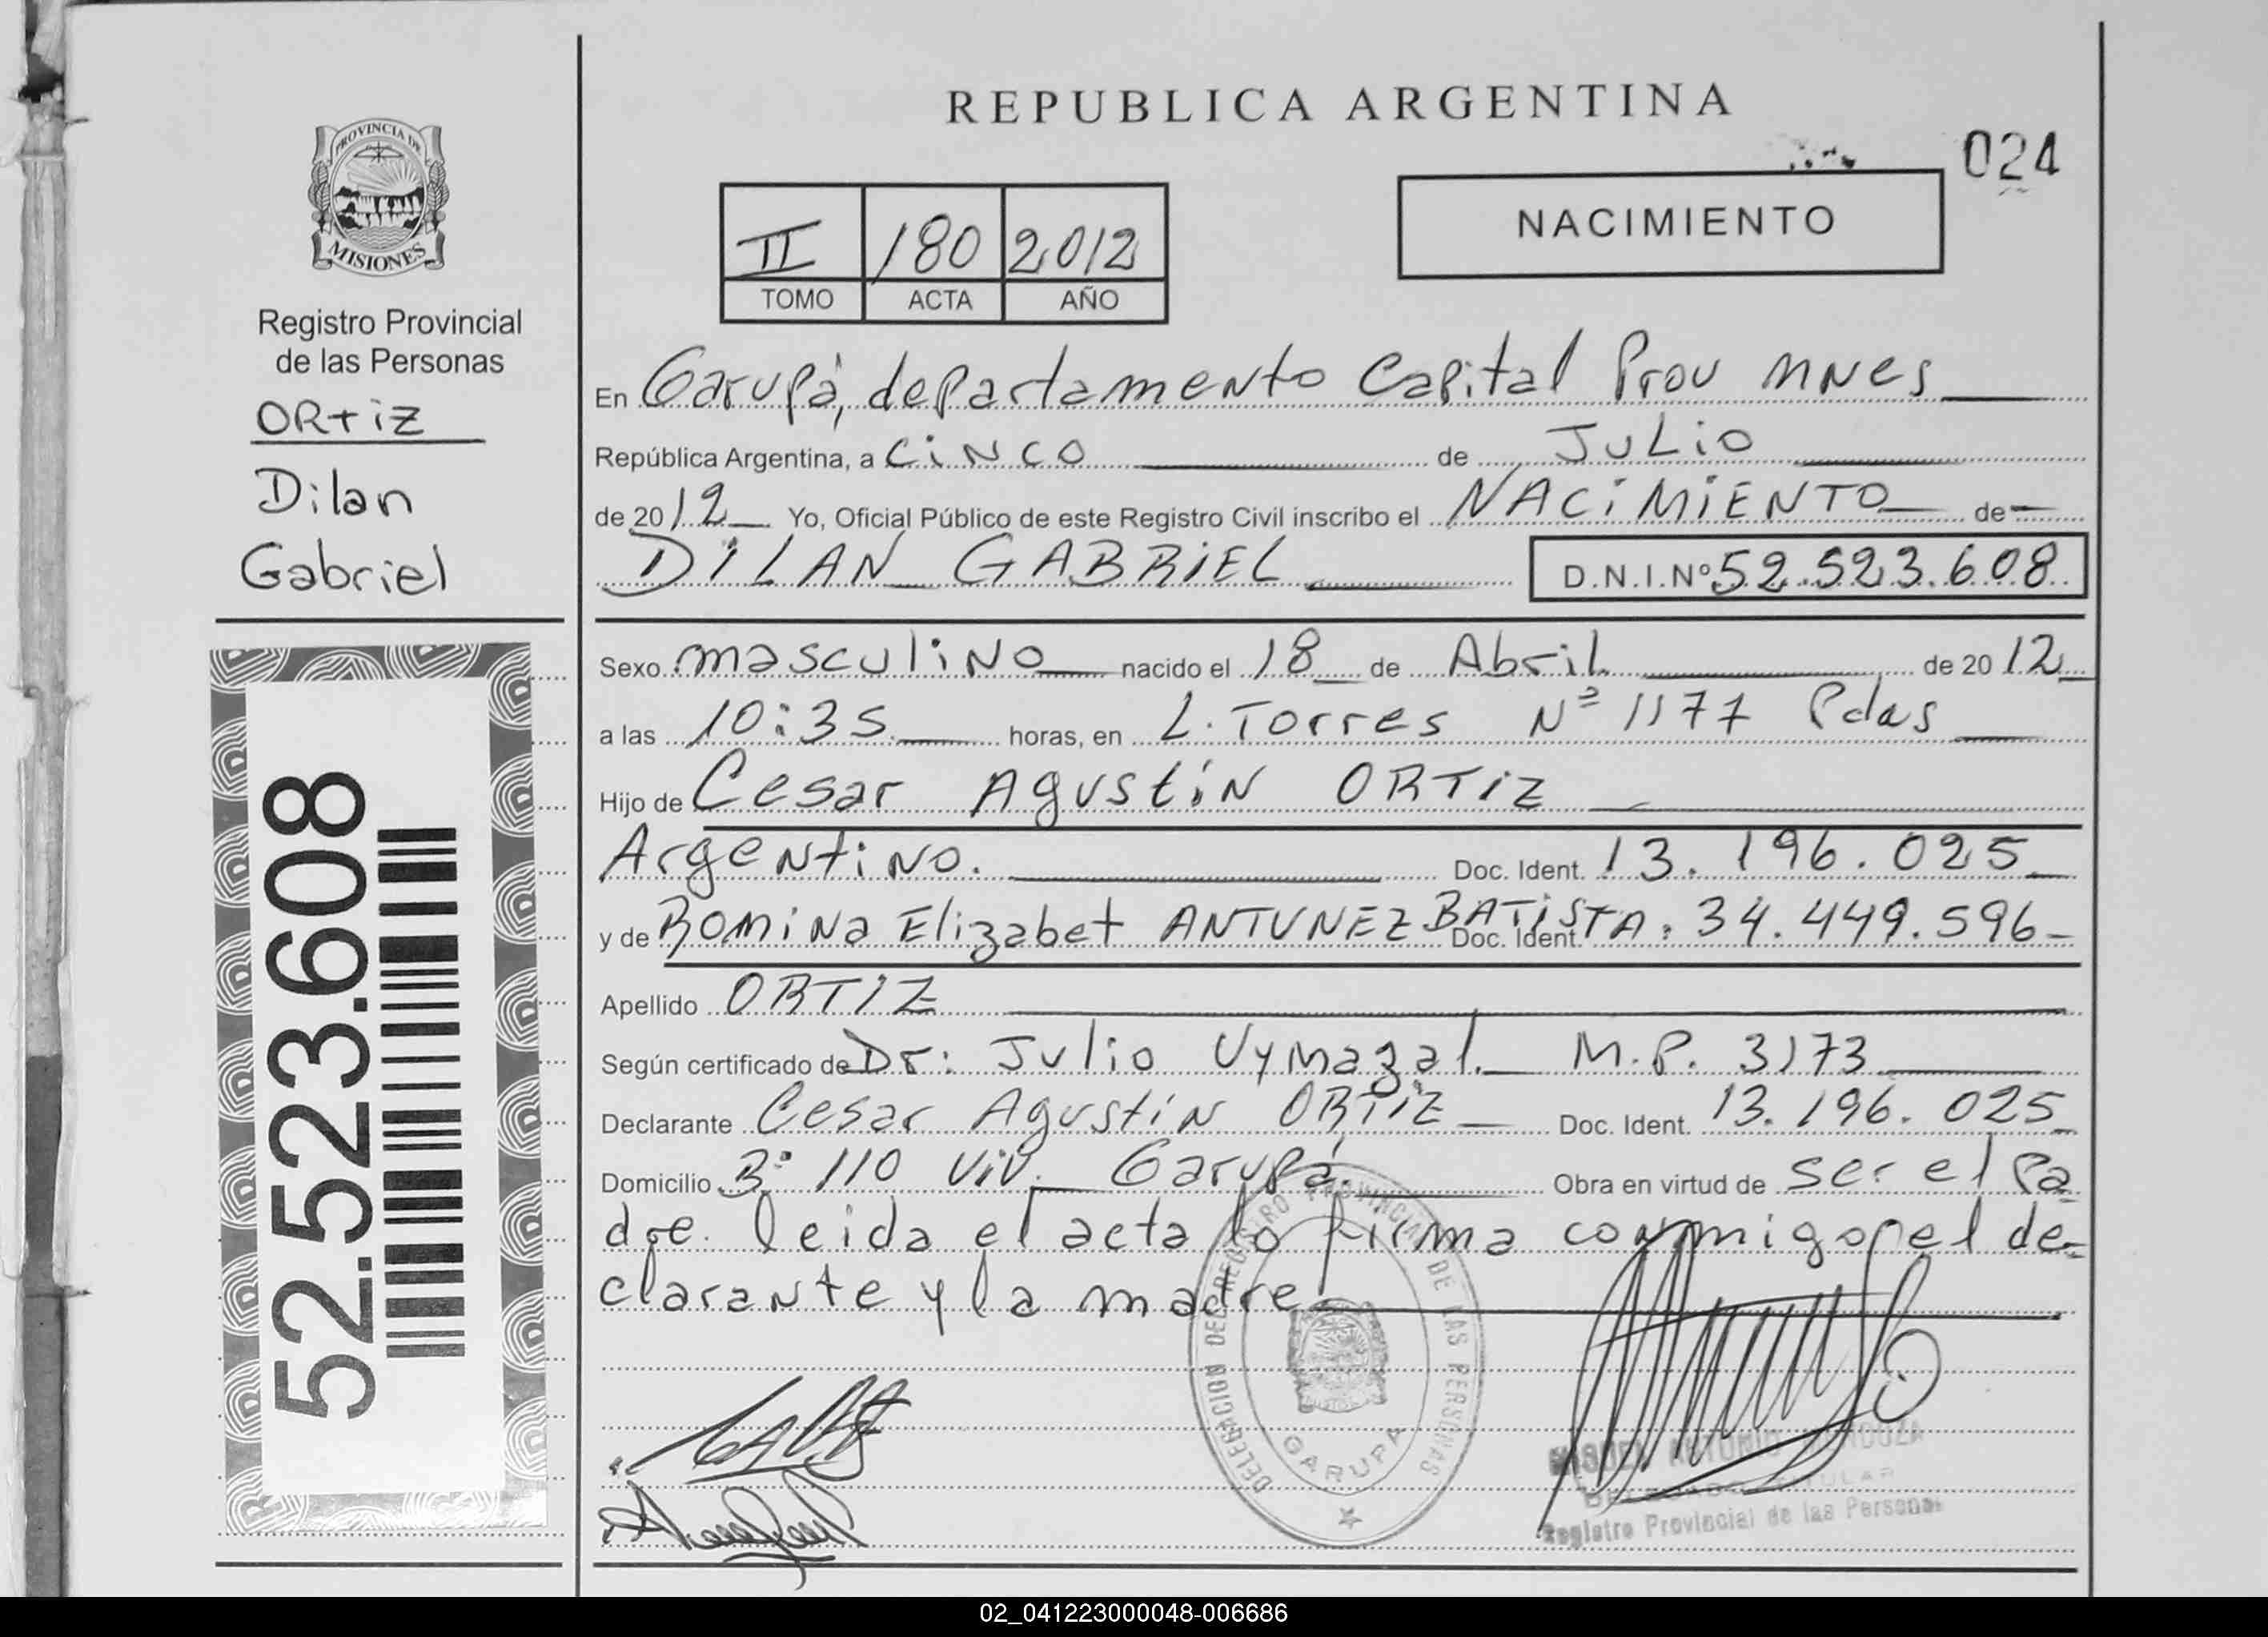 REPUBLICA ARGENTINA
024
PROVINCIA DE
MISIONES
Registro Provincial
de las Personas
ORtiZ
Dilan
Gabriel
52.523.608
II 180 2012
TOMO ACTA AÑO
NACIMIENTO
En Garupá, departamento Capital Prov MNes
República Argentina, a CiNCO de JULio
de 2012 Yo, Oficial Público de este Registro Civil inscribo el NACiMiENTO de
DiLAN GABRiEL D.N.I.Nº 52.523.608
Sexo masculiNo nacido el 18 de Abril de 2012
a las 10:35 horas, en L. Torres Nº 1177 Pdas
Hijo de Cesar AgustiN ORTiZ
ArgeNtiNo. Doc. Ident. 13.196.025
y de RomiNa Elizabet ANTUNEZ BATiSTA Doc. Ident. : 34.449.596
Apellido ORTIZ
Según certificado de Dr: Julio Vymazal. M.P. 3173
Declarante Cesar AgustiN ORTiZ Doc. Ident. 13.196.025
Domicilio Bº 110 Viv. Garupá. Obra en virtud de ser el Pa
dre. leida el acta lo firma conmigo el de-
claraNte y la madre
DELEGACION DEL REGISTRO PROVINCIAL DE LAS PERSONAS
GARUPA
MIGUEL ANTONIO MENDOZA
DELEGADO TITULAR
Registro Provincial de las Personas
02_041223000048-006686